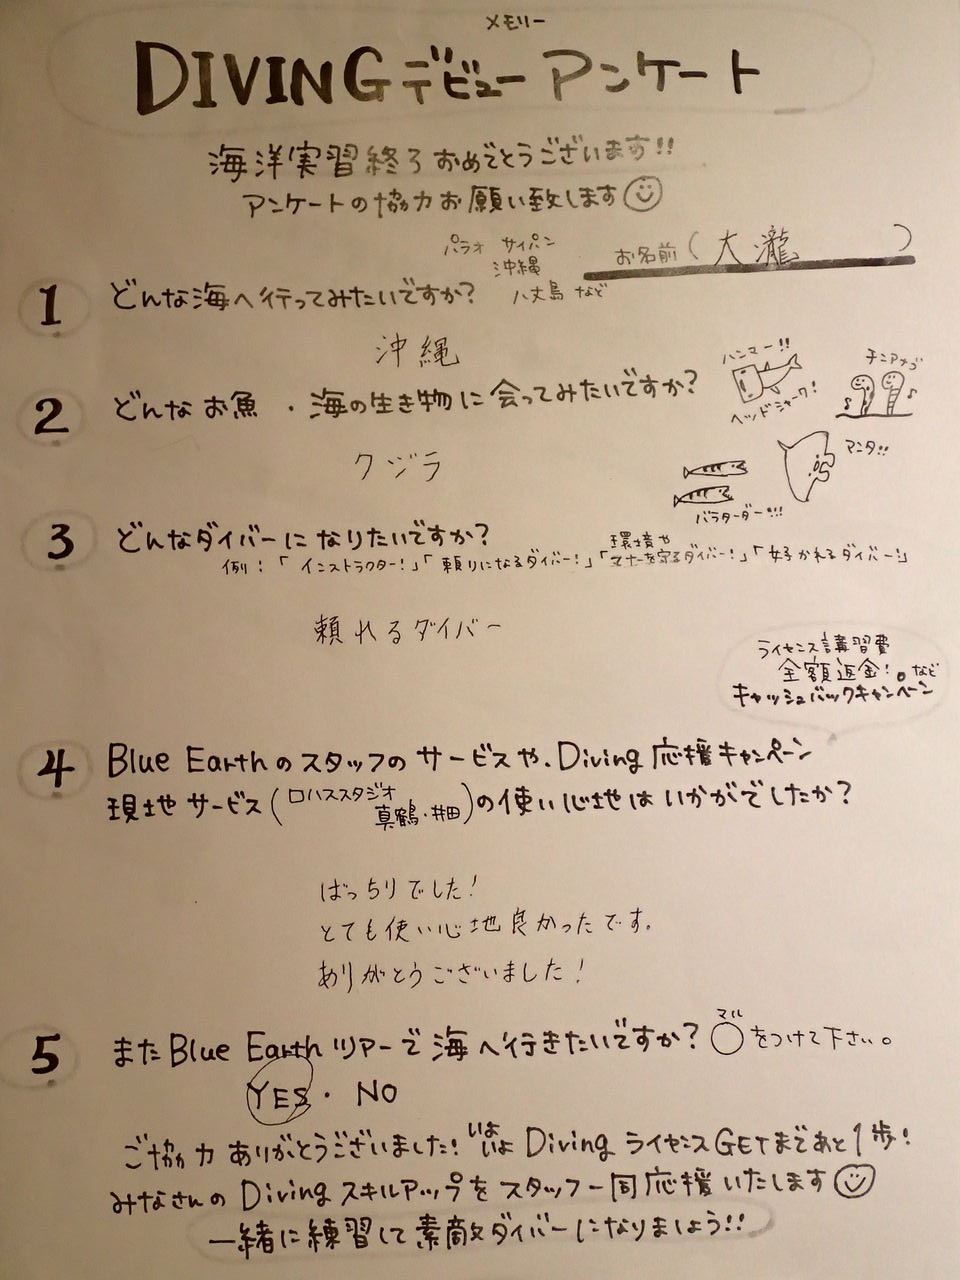 メモリー
DIVINGデビューアンケート
海洋実習終了おめでとうございます!!
アンケートの協力お願い致します
お名前(大瀧)
パラオ サイパン
沖縄
八丈島 など
1 どんな海へ行ってみたいですか?
沖縄
2 どんなお魚・海の生き物に会ってみたいですか?
ハンマー!!
ヘッドシャーク!
チンアナゴ
マンタ!!
バラクーダー!!!
クジラ
3 どんなダイバーになりたいですか?
例:「インストラクター!」「頼りになるダイバー!」「環境やマナーを守るダイバー!」「女子かれるダイバー!」
頼れるダイバー
ライセンス講習費
全額返金!。など
キャッシュバックキャンペーン
4 Blue Earthのスタッフのサービスや、Diving応援キャンペーン
現地サービス(ロハススタジオ 真鶴・井田)の使い心地はいかがでしたか?
ばっちりでした!
とても使い心地良かったです。
ありがとうございました!
5 またBlue Earthツアーで海へ行きたいですか? マル ○をつけて下さい。
YES・NO
ご協力ありがとうございました!いよいよDivingライセンスGETまであと1歩!
みなさんのDivingスキルアップをスタッフ一同応援いたします
一緒に練習して素敵ダイバーになりましょう!!